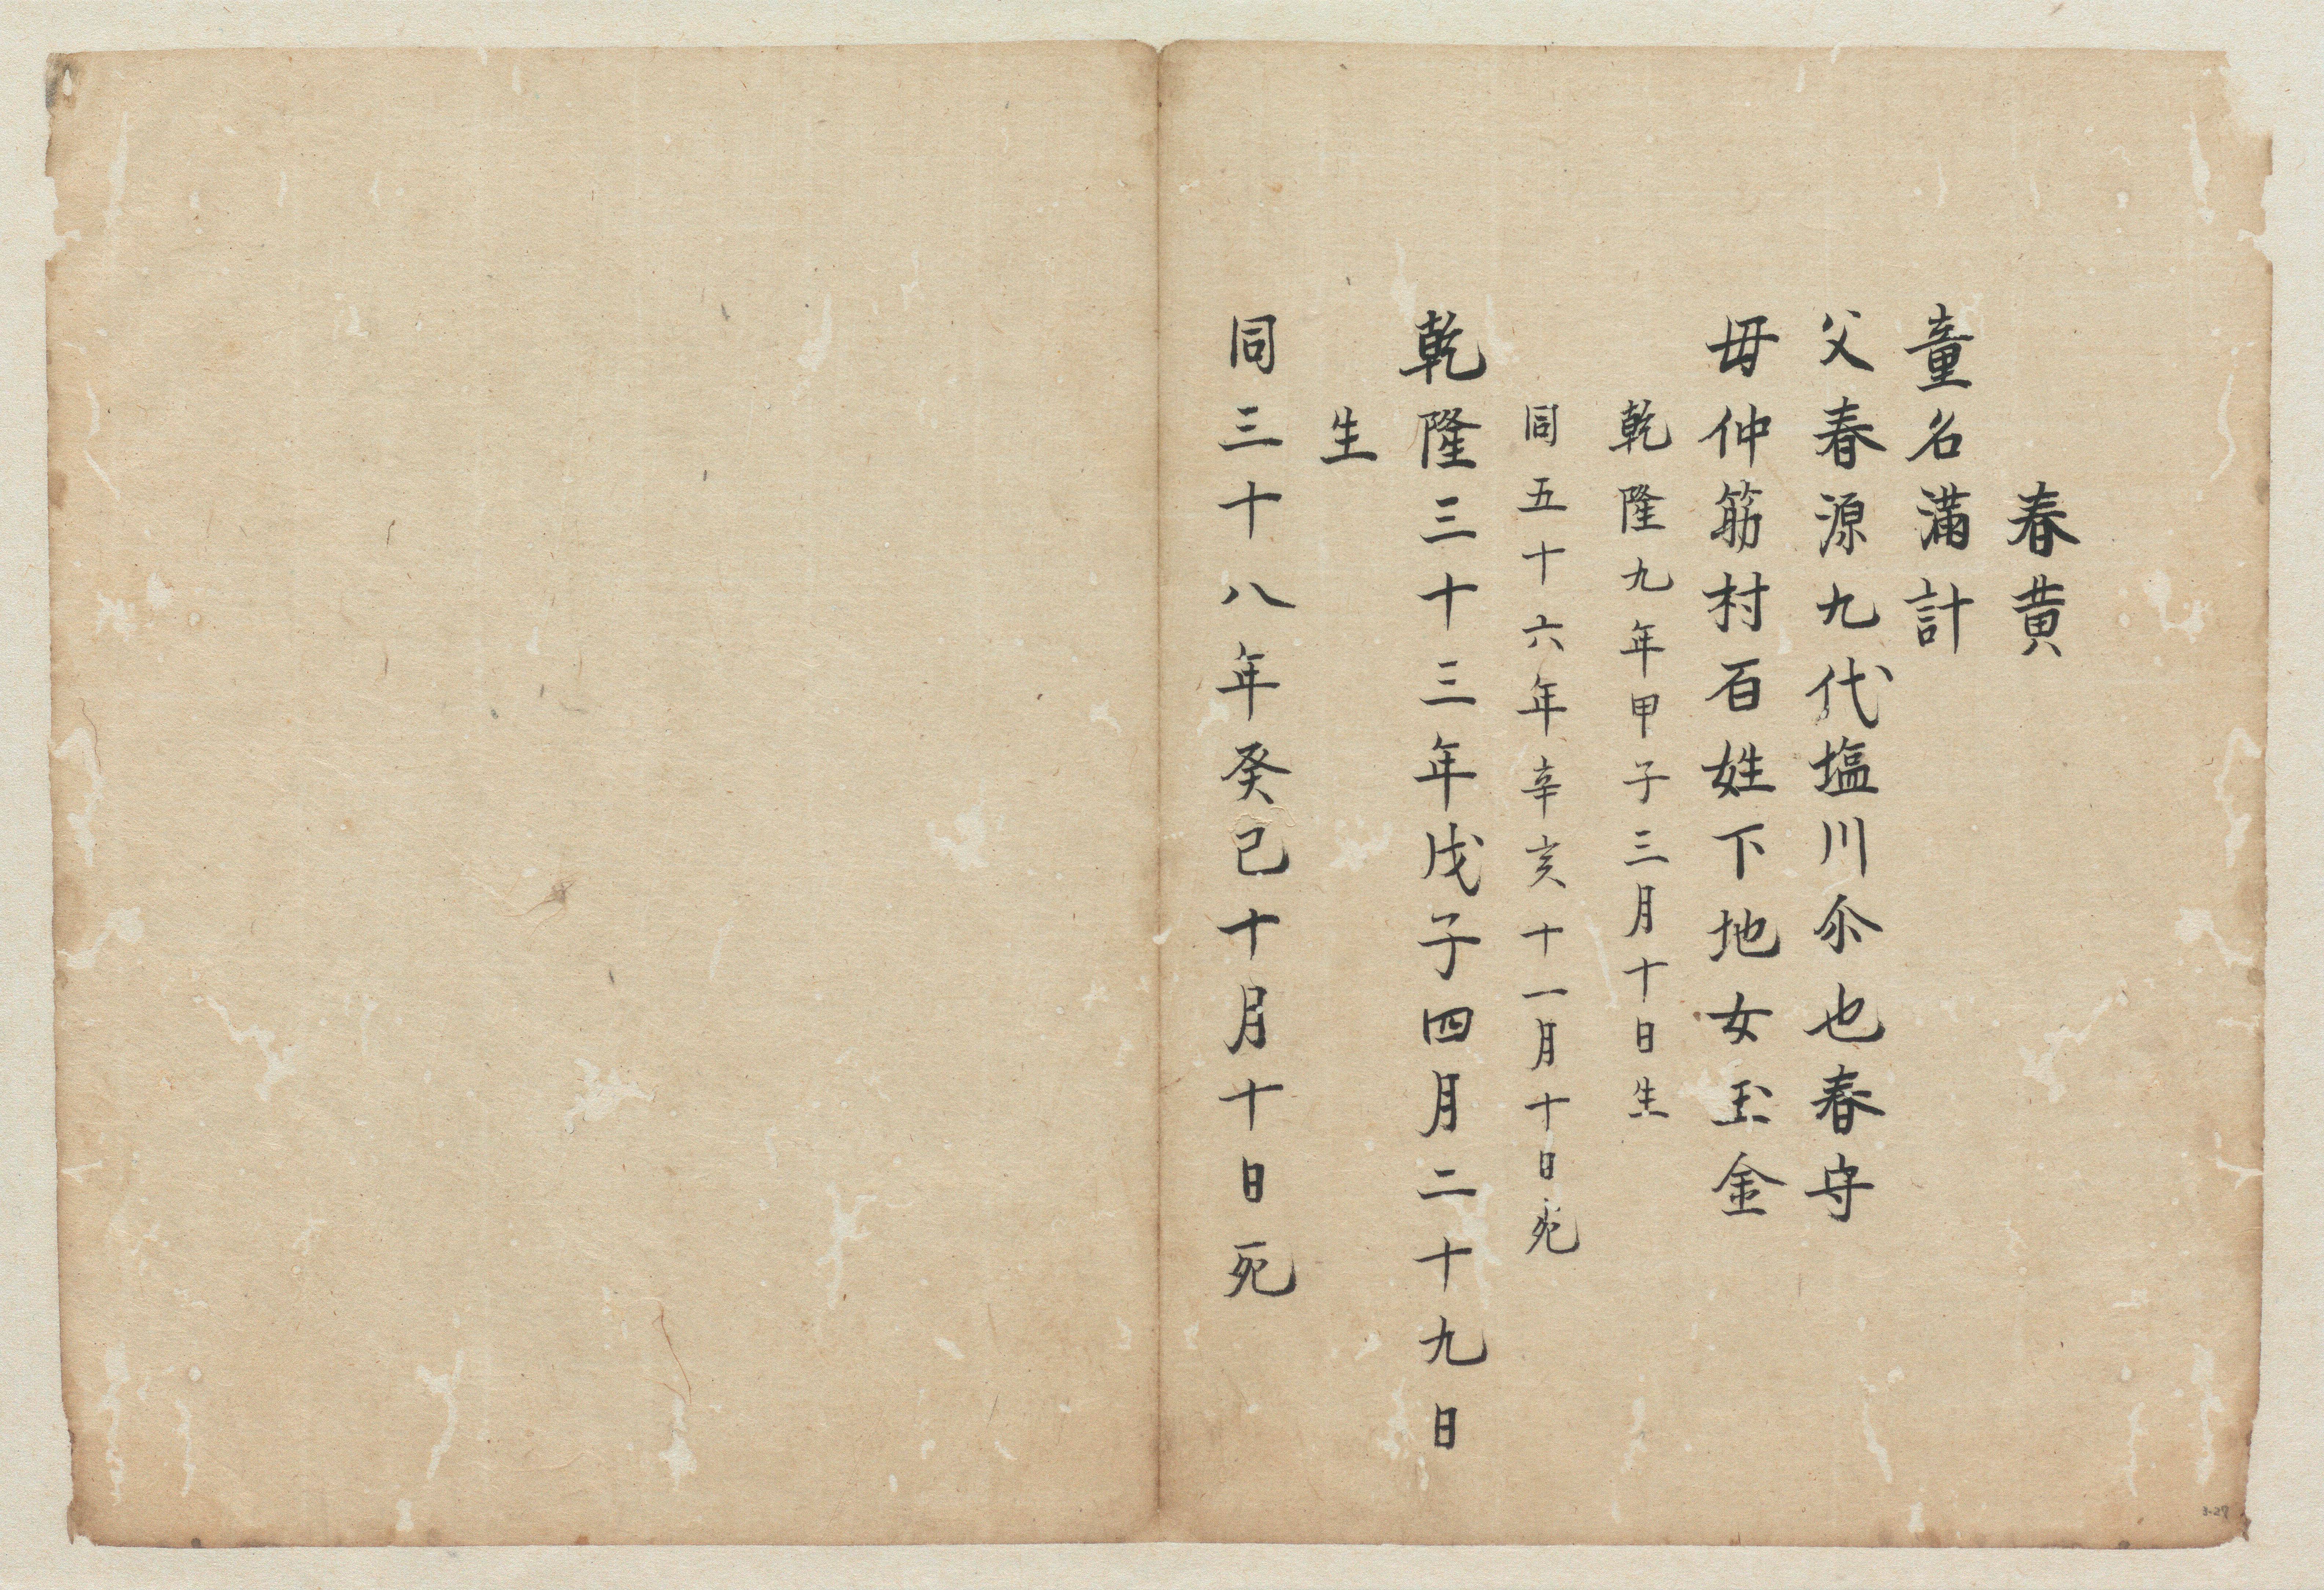 春黄
童名満計
父春源九代塩川尒也春守
母仲筋村百姓下地女玉金
乾隆九年甲子三月十日生
同五十六年辛亥十一月十日死
乾隆三十三年戊子四月二十九日
生
同三十八年癸巳十月十日死